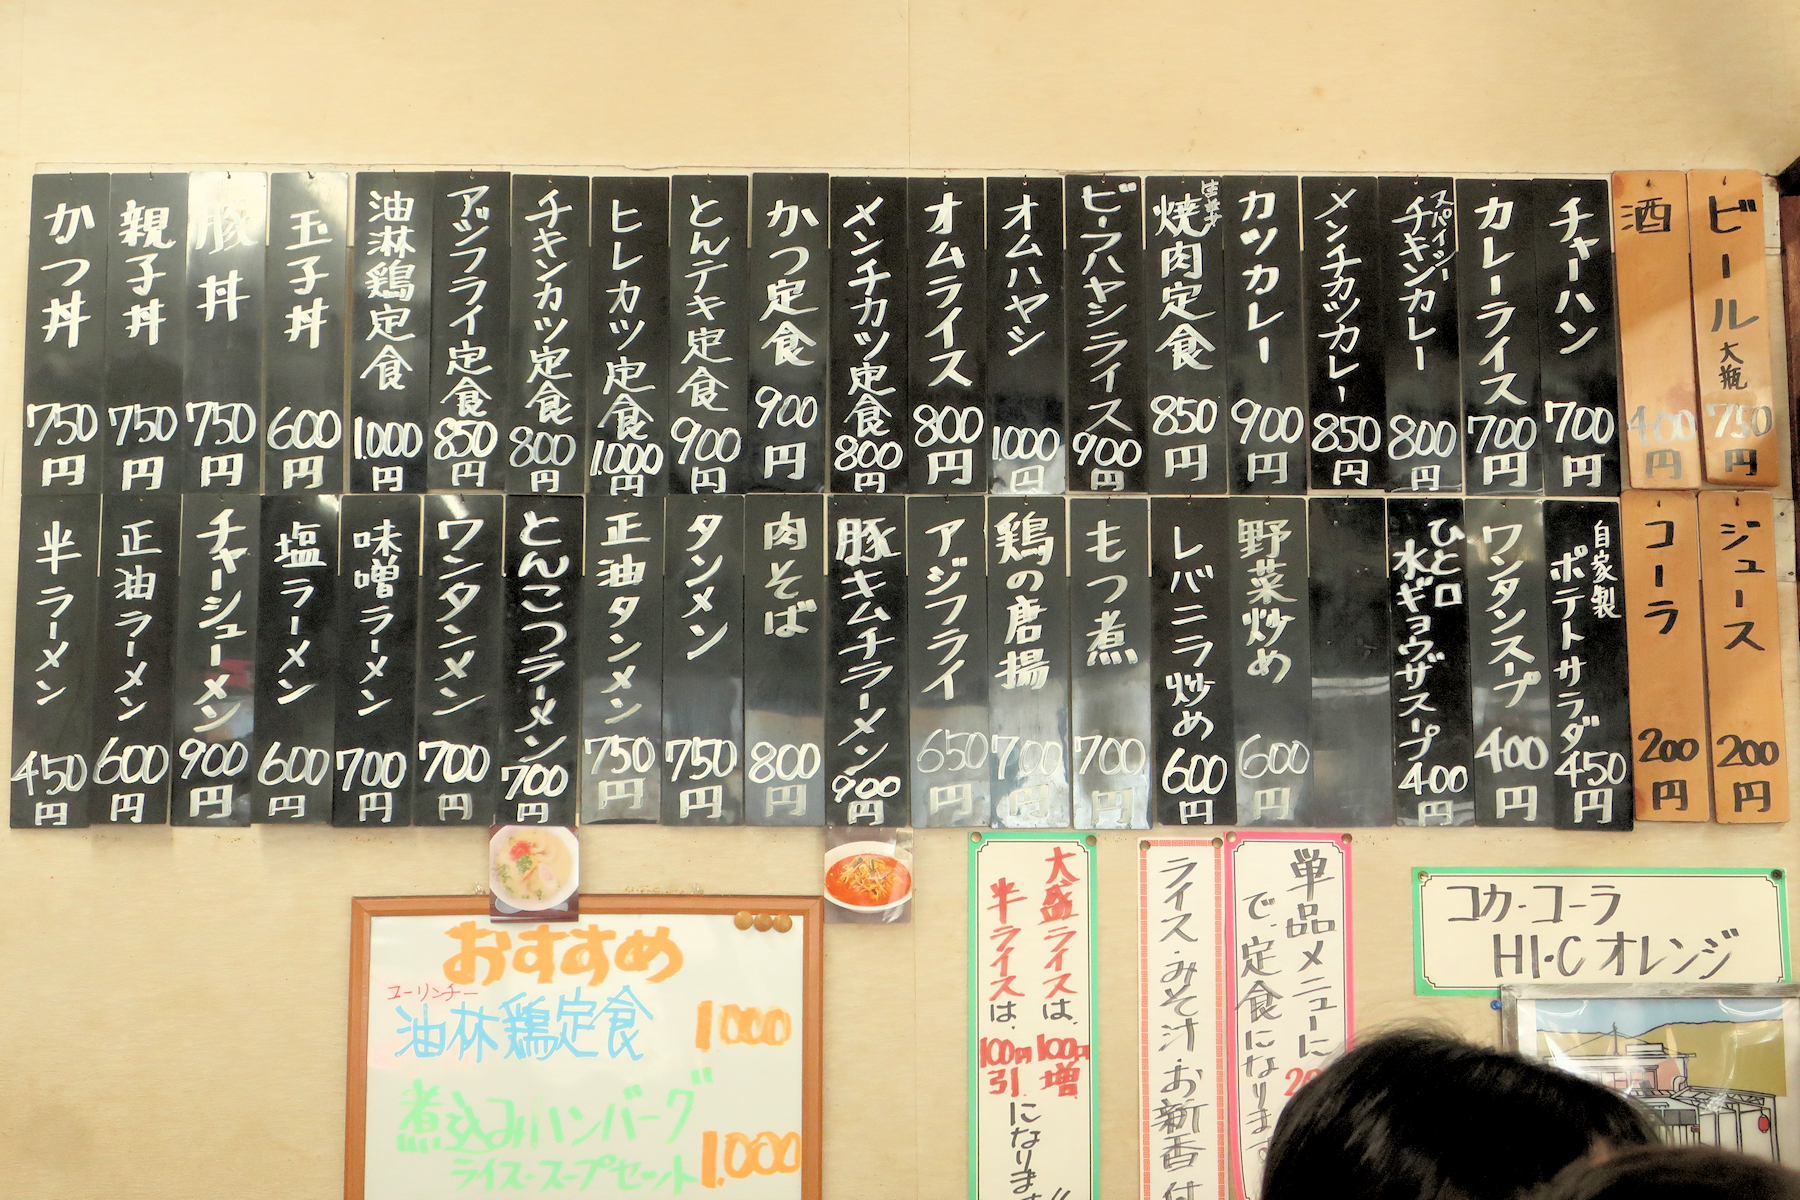 ビール大瓶 750円
酒 400円
チャーハン 700円
カレーライス 700円
スパイシーチキンカレー 800円
メンチカツカレー 850円
カツカレー 900円
生姜 焼肉定食 850円
ビーフハヤシライス 900円
オムハヤシ 1,000円
オムライス 800円
メンチカツ定食 800円
かつ定食 900円
とんテキ定食 900円
ヒレカツ定食 1,000円
チキンカツ定食 800円
アジフライ定食 850円
油淋鶏定食 1,000円
玉子丼 600円
豚丼 750円
親子丼 750円
かつ丼 750円
ジュース 200円
コーラ 200円
自家製 ポテトサラダ 450円
ワンタンスープ 400円
ひと口 水ギョウザスープ 400円
野菜炒め 600円
レバニラ炒め 600円
もつ煮 700円
鶏の唐揚 700円
アジフライ 650円
豚キムチラーメン 900円
肉そば 800円
タンメン 750円
正油タンメン 750円
とんこつラーメン 700円
ワンタンメン 700円
味噌ラーメン 700円
塩ラーメン 600円
チャーシューメン 900円
正油ラーメン 600円
半ラーメン 450円
コカ・コーラ
HI・C オレンジ
単品メニューに
で、定食になります。
ライス・みそ汁・お新香付
大盛ライスは、100円増
半ライスは、100円引 になります
おすすめ
ユーリンチー
油林鶏定食 1000
煮込みハンバーグ
ライス・スープセット 1,000